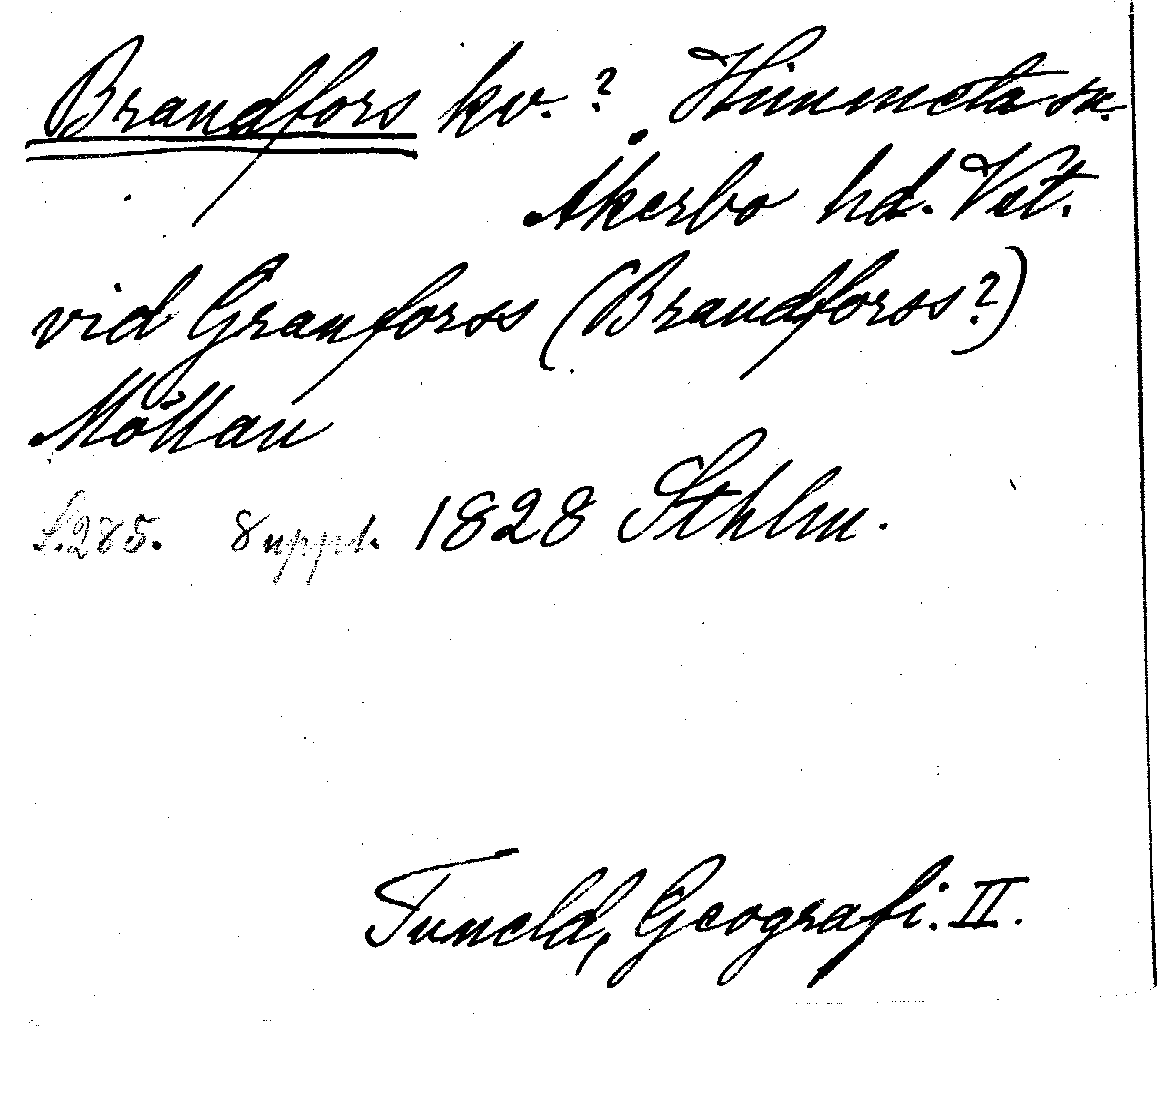 Brandfors kv.? Himmeta sn.
Åkerbo hd. Vst.
vid Granforss (Brandforss?)
Möllan
S.285. 8 uppl. 1828 Sthlm.
Tuneld, Geografi. II.